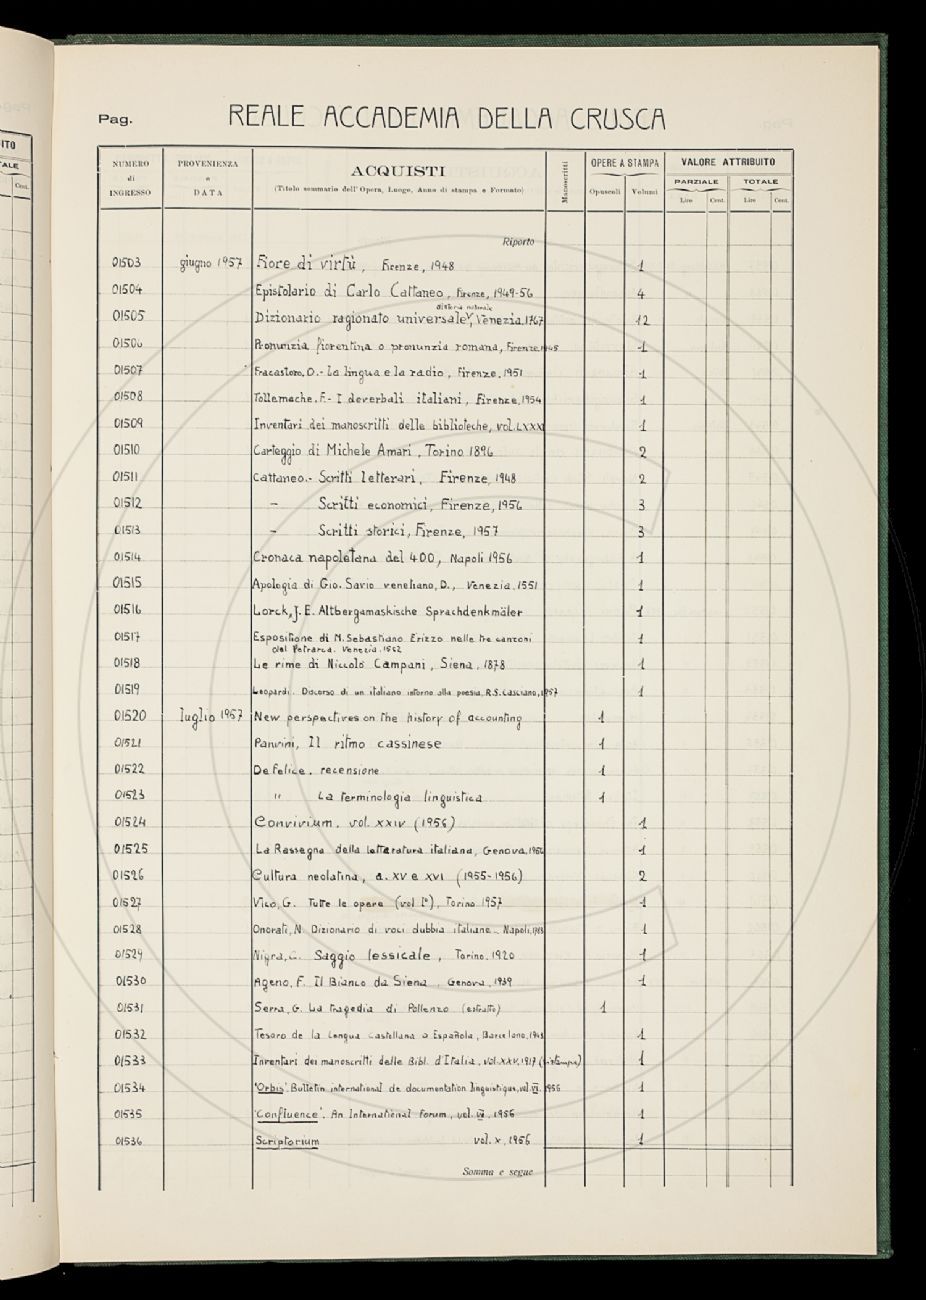 ITO
TALE
Cent.
Pag. REALE ACCADEMIA DELLA CRUSCA
NUMERO di INGRESSO PROVENIENZA e DATA ACQUISTI (Titolo sommario dell'Opera, Luogo, Anno di stampa e Formato) Manoscritti OPERE A STAMPA Opuscoli Volumi VALORE ATTRIBUITO PARZIALE Lire Cent. TOTALE Lire Cent.
Riporto
01503 giugno 1957 Fiore di virtù, Firenze, 1948 1
01504 Epistolario di Carlo Cattaneo, Firenze, 1949-56 4
di storia naturale
01505 Dizionario ragionato universale, Venezia, 1767 12
01506 Pronunzia fiorentina o pronunzia romana, Firenze, 1945 1
01507 Fracastoro, O.- La lingua e la radio, Firenze, 1951 1
01508 Tollemache, F.- I deverbali italiani, Firenze, 1954 1
01509 Inventari dei manoscritti delle biblioteche, vol. LXXXI 1
01510 Carteggio di Michele Amari, Torino 1896 2
01511 Cattaneo.- Scritti letterari, Firenze, 1948 2
01512 - Scritti economici, Firenze, 1956 3
01513 - Scritti storici, Firenze, 1957 3
01514 Cronaca napoletana del 400, Napoli 1956 1
01515 Apologia di Gio. Savio venetiano, D., Venezia, 1551 1
01516 Lorck, J. E. Altbergamaskische Sprachdenkmäler 1
01517 Espositione di M. Sebastiano Erizzo nelle tre canzoni 1
del Petrarca. Venezia, 1562
01518 Le rime di Niccolò Campani, Siena, 1878 1
01519 Leopardi. Discorso di un italiano intorno alla poesia, R.S. Casciano, 1957 1
01520 luglio 1957 New perspectives on the history of accounting 1
01521 Panvini, Il ritmo cassinese 1
01522 De Felice. recensione 1
01523 " La terminologia linguistica 1
01524 Convivium. vol. XXIV (1956) 1
01525 La Rassegna della letteratura italiana, Genova, 1956 1
01526 Cultura neolatina, a. XV e XVI (1955-1956) 2
01527 Vico, G. Tutte le opere (vol I°), Torino 1957 1
01528 Onorati, N. Dizionario di voci dubbie italiane - Napoli, 1
01529 Nigra, C. Saggio lessicale, Torino, 1920 1
01530 Ageno, F. Il Bianco da Siena, Genova, 1939 1
01531 Serra, G. La tragedia di Pollenzo (estratto) 1
01532 Tesoro de la Lengua Castellana o Española, Barcelona, 1943 1
01533 Inventari dei manoscritti delle Bibl. d'Italia, vol. XXV, 1917 (ristampa) 1
01534 'Orbis'. Bulletin international de documentation linguistique, vol. VI. 1956 1
01535 'Confluence'. An International Forum, vol. VI, 1956 1
01536 Scriptorium vol. X, 1956 1
Somma e segue